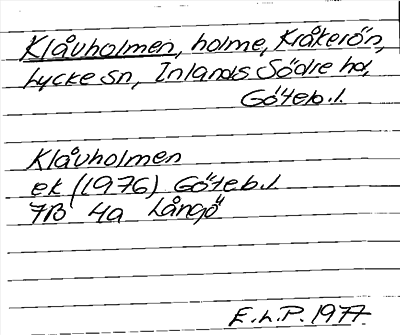 Klåvholmen, holme, Kråkerön,
Lycke sn, Inlands Södre hd,
Göteb.l.
Klåvholmen
ek (1976) Göteb.l
7B 4a Långö
E.L.P. 1977